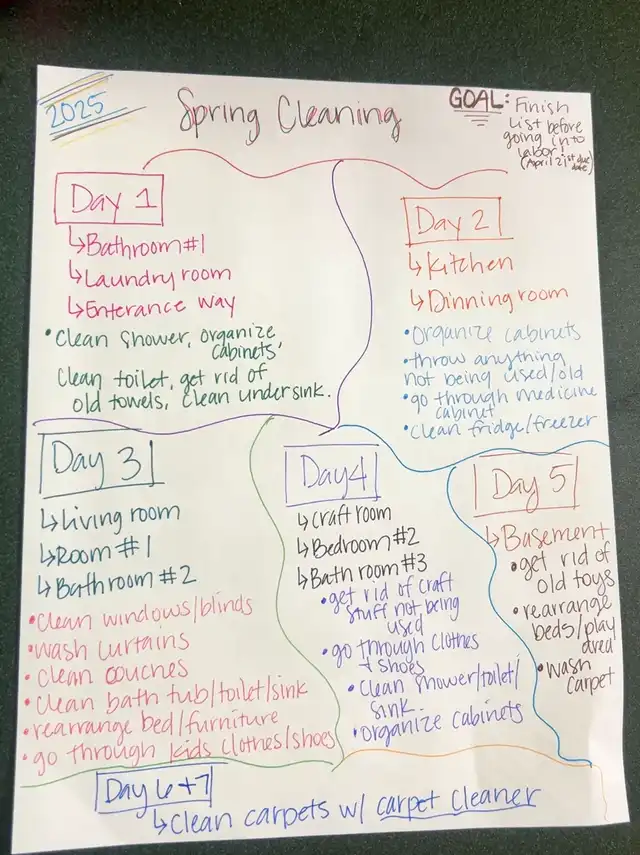 2025
Spring Cleaning
GOAL: Finish
List before
going into
labor!
(April 21st due
date)
Day 1
↳Bathroom #1
↳Laundry room
↳Enterance way
• Clean shower, organize
cabinets,
Clean toilet, get rid of
old towels, clean under sink.
Day 2
↳Kitchen
↳Dinning room
• organize cabinets
• throw anything
not being used/old
• go through medicine
cabinet
• clean fridge/freezer
Day 3
↳Living room
↳Room #1
↳Bathroom #2
• Clean windows/blinds
• wash curtains
• Clean couches
• Clean bath tub/toilet/sink
• rearrange bed/furniture
• go through kids clothes/shoes
Day 4
↳Craft room
↳Bedroom #2
↳Bath room #3
• get rid of craft
stuff not being
used
• go through clothes
+ shoes
• Clean shower/toilet/
sink.
• organize cabinets
Day 5
↳Basement
• get rid of
old toys
• rearrange
beds/play
area
• wash
carpet
Day 6+7
↳Clean carpets w/ carpet cleaner